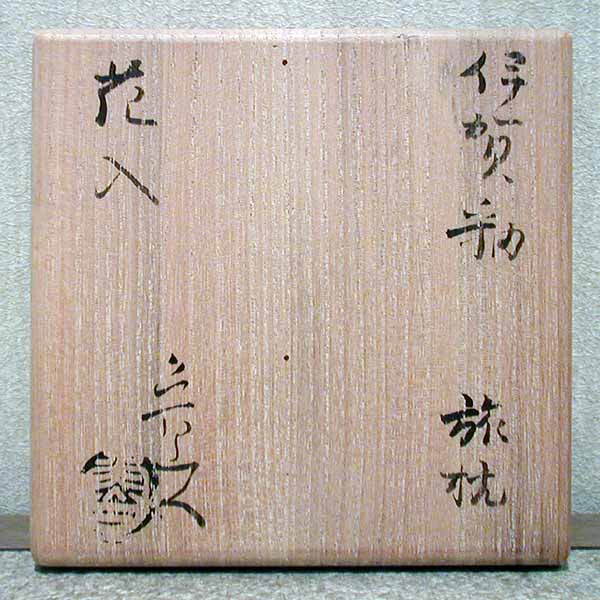 伊賀釉
旅枕
花入